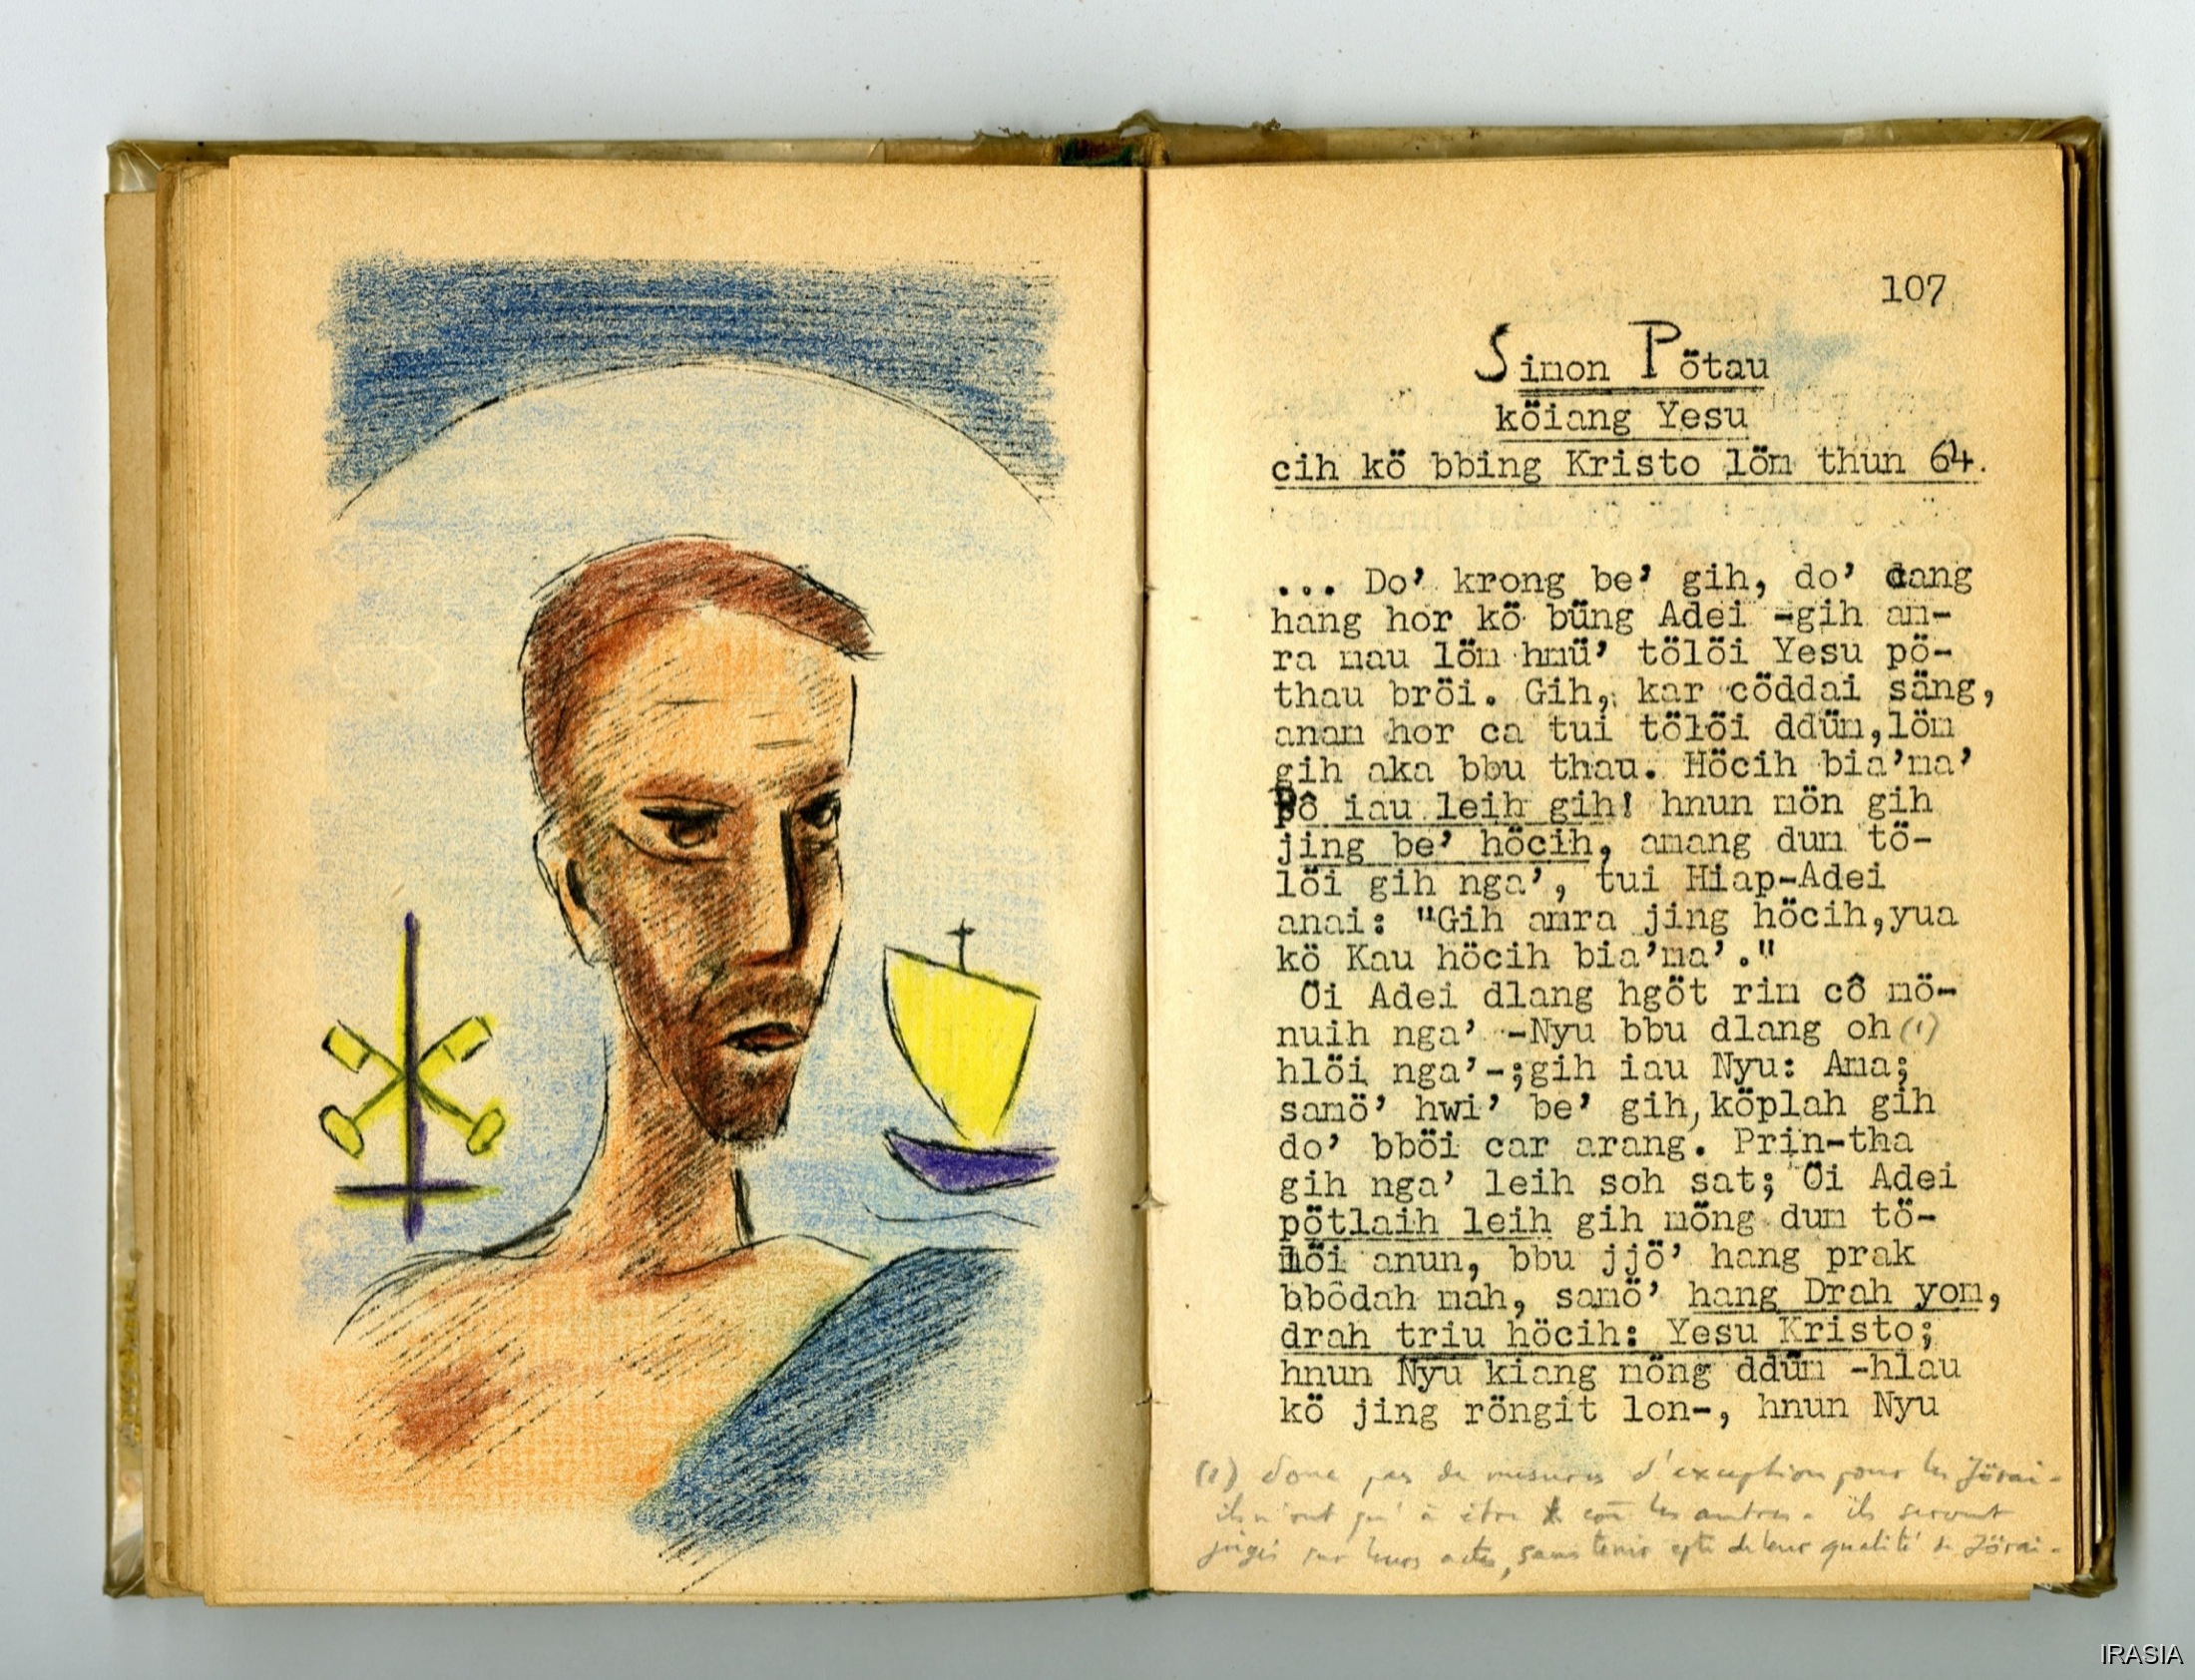 107
Simon Pötau
köiang Yesu
cih kö bbing Kristo löm thun 64.
... Do’ krong be’ gih, do’ dang
hang hor kö büng Adei -gih am-
ra mau löm hmü’ tölöi Yesu pö-
thau bröi. Gih, kar cöddai säng,
anam hor ca tui tölöi ddüm,löm
gih aka bbu thau. Höcih bia’ma’
Pô iau leih gih! hnun mön gih
jing be’ höcih, amang dum tö-
löi gih nga’, tui Hiap-Adei
anai: "Gih amra jing höcih,yua
kö Kau höcih bia’ma’."
Öi Adei dlang hgöt rim cô mö-
nuih nga’ -Nyu bbu dlang oh (1)
hlöi nga’-;gih iau Nyu: Ama;
samö’ hwi’ be’ gih, köplah gih
do’ bböi car arang. Prin-tha
gih nga’ leih soh sat; Öi Adei
pötlaih leih gih möng dum tö-
löi anun, bbu jjö’ hang prak
bbôdah mah, samö’ hang Drah yom,
drah triu höcih: Yesu Kristo;
hnun Nyu kiang möng ddüm -hlau
kö jing röngit lon-, hnun Nyu
(1) donc pas de mesures d'exception pour les Jörai -
ils n'ont qu' à être les autres - ils seront
jugés sur leurs actes, sans tenir cpte de leur qualité de Jörai -
IRASIA